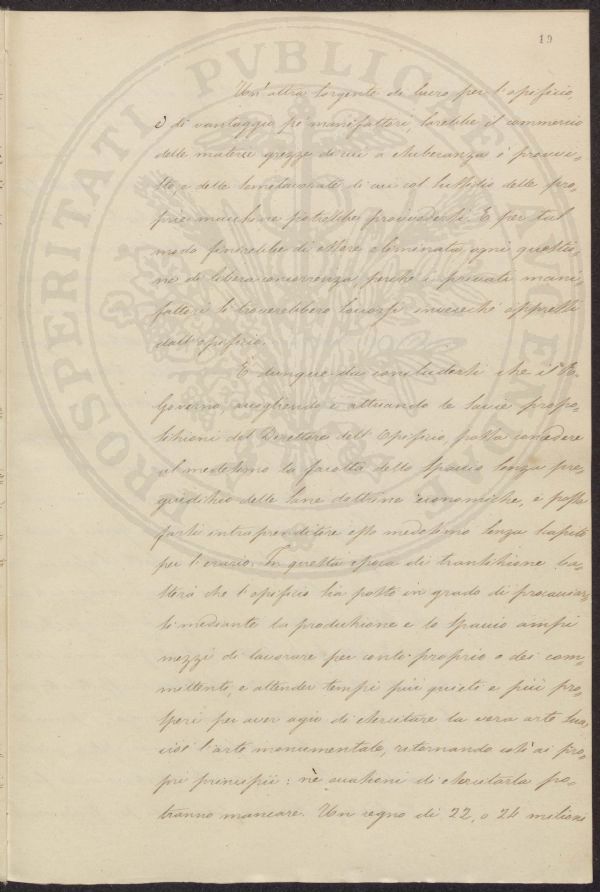 19
Un'altra sorgente di lucro per l'opificio,
e di vantaggio pe' manifattori, sarebbe il commercio
delle materie grezze di cui a esuberanza è provvi-
sto, e delle semilavorate di cui col sussidio delle pro-
prie macchine potrebbe provvedersi. E per tal
modo finirebbe di essere eliminata ogni questio-
ne di libera concorrenza, perchè i privati mani-
fattori si troverebbero soccorsi invecechè oppressi
dall'opificio.
È dunque da concludersi che il R.
Governo, accogliendo e attuando le savie propo-
sizioni del Direttore dell'Opificio, possa concedere
al medesimo la facoltà dello spaccio senza pre-
giudizio delle sane dottrine economiche, e possa
farsi intraprenditore esso medesimo senza scapito
per l'erario. In questa epoca di transizione ba-
sterà che l'opificio sia posto in grado di procacciar-
si mediante la produzione e lo spaccio ampi
mezzi di lavorare per conto proprio o dei com-
mittenti, e attender tempi più quieti e più pro-
speri per aver agio di esercitare la vera arte sua,
cioè l'arte monumentale, ritornando così ai pro-
pri principii: nè occasioni di esercitarla po-
tranno mancare. Un regno di 22, o 24 milioni
PROSPERITATI PVBLICAE AVGENDAE